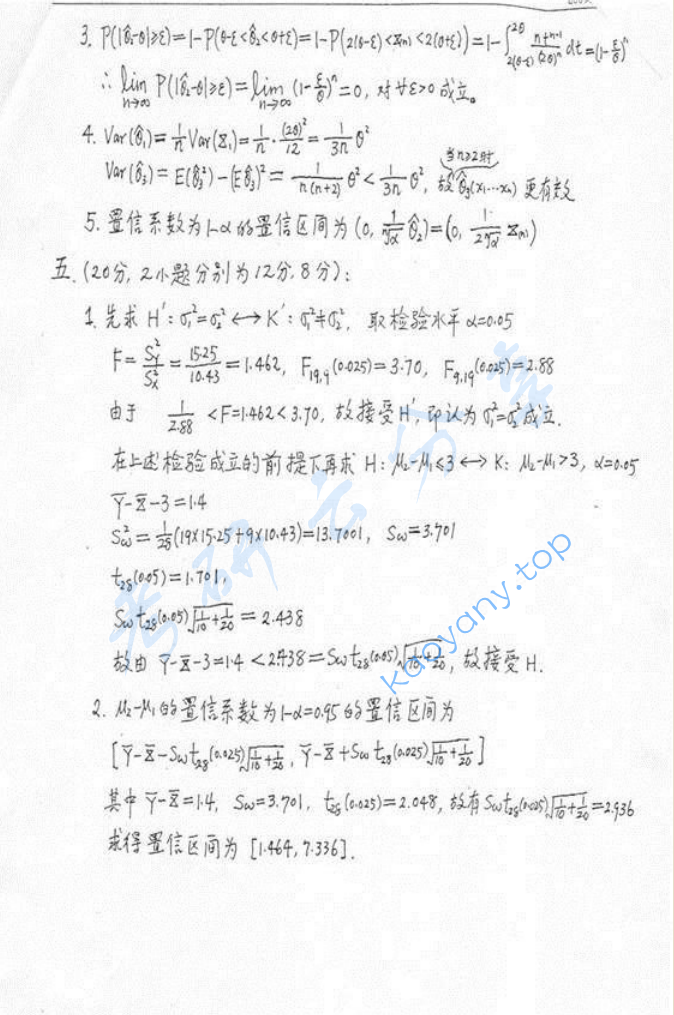 3. P(|θ̂₂-θ|≥ε)=1-P(θ-ε<θ̂₂<θ+ε)=1-P(2(θ-ε)<X₍ₙ₎<2(θ+ε))=1-∫_{2(θ-ε)}^{2θ} \frac{n t^{n-1}}{(2θ)^n} dt=(1-\frac{ε}{θ})^n
∴ \lim_{n→∞} P(|θ̂₂-θ|≥ε)=\lim_{n→∞} (1-\frac{ε}{θ})^n=0, 对∀ε>0成立。
4. Var(θ̂₁)=\frac{1}{n}Var(X₁)=\frac{1}{n}·\frac{(2θ)^2}{12}=\frac{1}{3n}θ²
当n≥2时
Var(θ̂₃)=E(θ̂₃²)-(Eθ̂₃)²=\frac{1}{n(n+2)}θ²<\frac{1}{3n}θ², 故θ̂₃(x₁…xₙ)更有效
5. 置信系数为1-α的置信区间为(0, \frac{1}{\sqrt[n]{α}}θ̂₂)=(0, \frac{1}{2\sqrt[n]{α}}X₍ₙ₎)
五.(20分, 2小题分别为12分, 8分):
1. 先求H′: σ₁²=σ₂²⟷K′: σ₁²≠σ₂², 取检验水平α=0.05
F=\frac{S_Y^2}{S_X^2}=\frac{15.25}{10.43}=1.462, F₁₉,₉(0.025)=3.70, F₉,₁₉(0.025)=2.88
由于 \frac{1}{2.88}<F=1.462<3.70, 故接受H′, 即认为σ₁²=σ₂²成立.
在上述检验成立的前提下再求H: μ₂-μ₁≤3⟷K: μ₂-μ₁>3, α=0.05
Ȳ-X̄-3=1.4
S_ω²=\frac{1}{28}(19×15.25+9×10.43)=13.7001, S_ω=3.701
t₂₈(0.05)=1.701,
S_ω t₂₈(0.05)\sqrt{\frac{1}{10}+\frac{1}{20}}=2.438
故由 Ȳ-X̄-3=1.4<2.438=S_ω t₂₈(0.05)\sqrt{\frac{1}{10}+\frac{1}{20}}, 故接受H.
2. μ₂-μ₁的置信系数为1-α=0.95的置信区间为
[Ȳ-X̄-S_ω t₂₈(0.025)\sqrt{\frac{1}{10}+\frac{1}{20}}, Ȳ-X̄+S_ω t₂₈(0.025)\sqrt{\frac{1}{10}+\frac{1}{20}}]
其中Ȳ-X̄=1.4, S_ω=3.701, t₂₈(0.025)=2.048, 故有S_ω t₂₈(0.025)\sqrt{\frac{1}{10}+\frac{1}{20}}=2.936
求得置信区间为[1.464, 7.336].
考研云分享
kaoyany.top